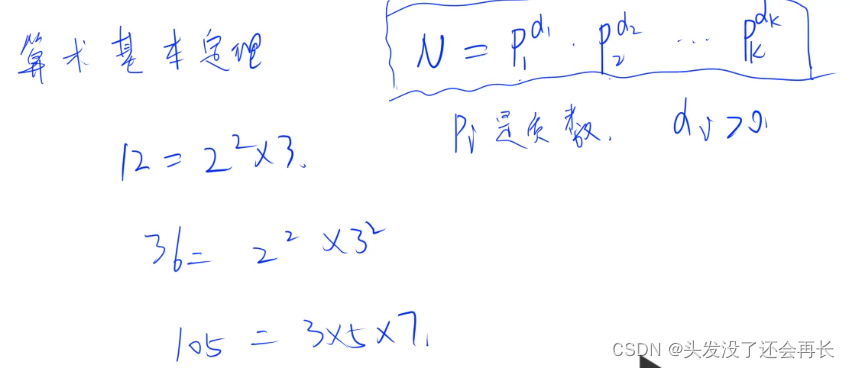 算术基本定理
N = P₁^d₁ · P₂^d₂ ⋯ Pₖ^dₖ
Pᵢ是质数. dᵢ>0.
12 = 2²×3.
36= 2² ×3²
105 = 3×5×7.
CSDN @头发没了还会再长